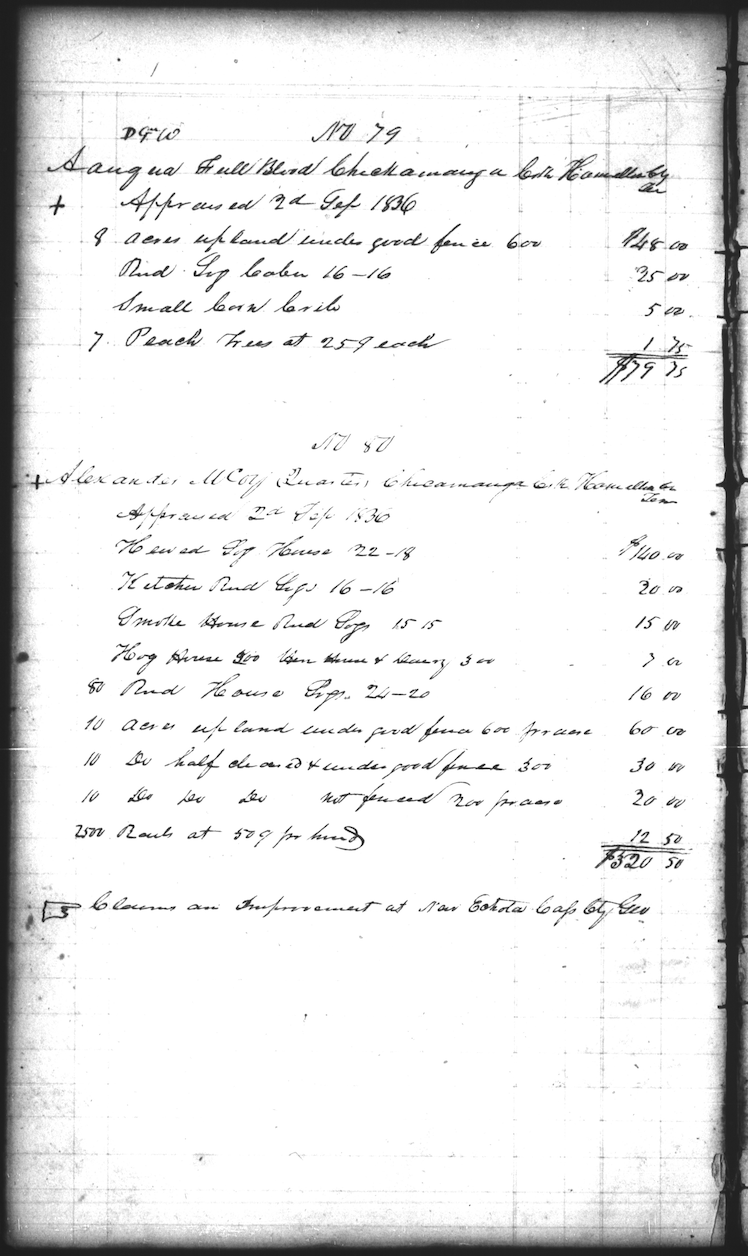 D & W No 79
Aauqua Full Blood Chickamauga Crk Hamelton Cty Ten
+ Appraised 2d Sep 1836
8 acres upland under good fence 600 $48 00
Rnd Log Cabin 16-16 25 00
Small Corn Crib 5 00
7 Peach Trees at 25¢ each 1 75
$79 75
No 80
+ Alexander McCoy (Quarter) Chicamauga Crk Hamelton Co Ten
Appraised 2d Sep 1836
Hewed Log House 22-18 $140 00
Kitchen Rnd Logs 16-16 20 00
Smoke House Rnd Logs 15 15 15 00
Hog House Hen House & 300 7 00
Rnd House Logs 24-20 16 00
10 acres upland under good fence 600 pr acre 60 00
10 Do half cleared & under good fence 300 30 00
10 Do Do Do not fenced 200 pr acre 20 00
2500 Rails at 50¢ pr hund 12 50
$320 50
Claims an Improvement at New Echota Cass Cty Geo